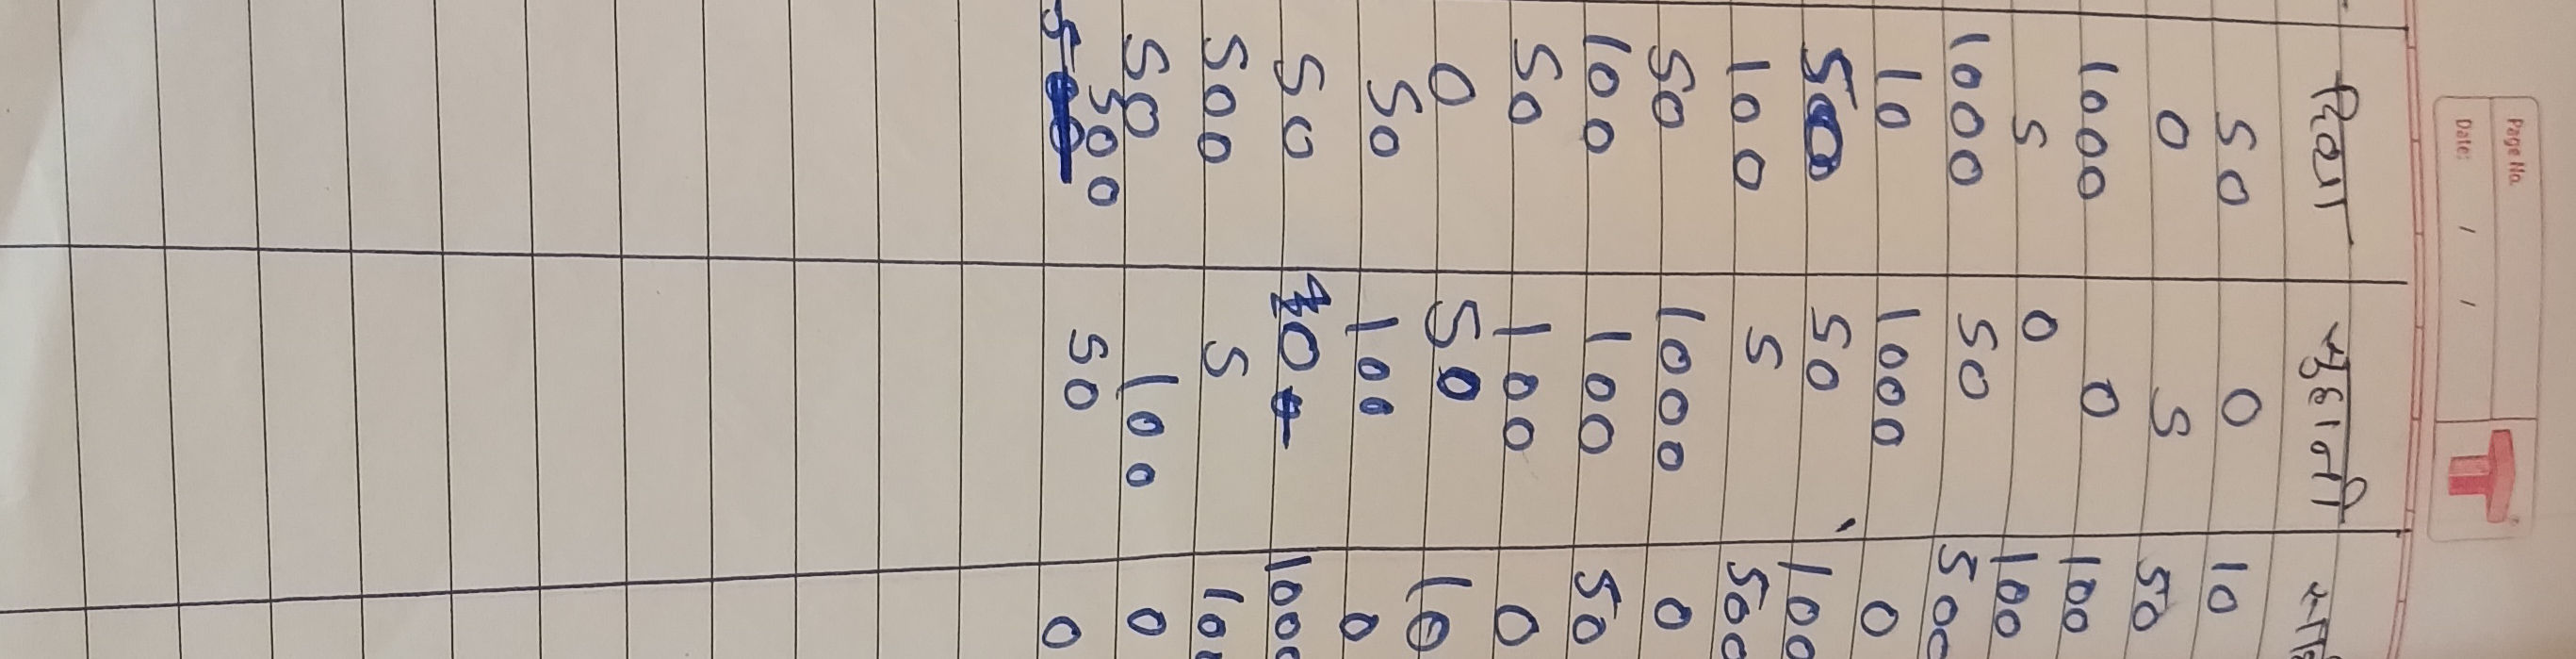 Page No.
Date: / /
सुहानी
50 0 10
0 5 50
1000 0 100
5 0 100
1000 50 500
10 1000 0
50 100
100 5 500
50 1000 0
100 100 50
50 100 0
0 50 10
50 100 0
50 1000
500 5 100
50 100 0
500 50 0